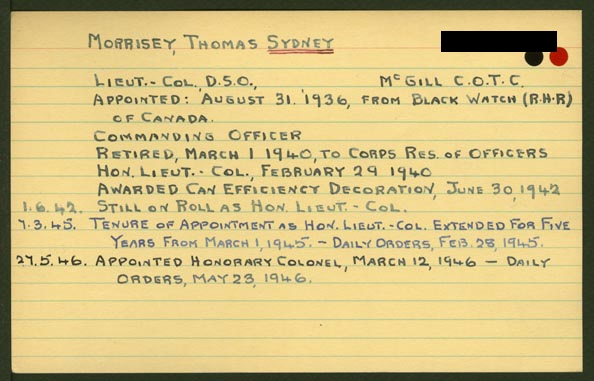 MORRISEY, THOMAS SYDNEY
LIEUT.-COL., D.S.O., MCGILL C.O.T.C.
APPOINTED: AUGUST 31, 1936, FROM BLACK WATCH (R.H.R)
OF CANADA.
COMMANDING OFFICER
RETIRED, MARCH 1 1940, TO CORPS RES. OF OFFICERS
HON. LIEUT.-COL., FEBRUARY 29 1940
AWARDED CAN EFFICIENCY DECORATION, JUNE 30, 1942
1.6.42. STILL ON ROLL AS HON. LIEUT.-COL.
7.3.45. TENURE OF APPOINTMENT AS HON. LIEUT.-COL. EXTENDED FOR FIVE
YEARS FROM MARCH 1, 1945. – DAILY ORDERS, FEB. 28, 1945.
27.5.46. APPOINTED HONORARY COLONEL, MARCH 12, 1946 – DAILY
ORDERS, MAY 23, 1946.